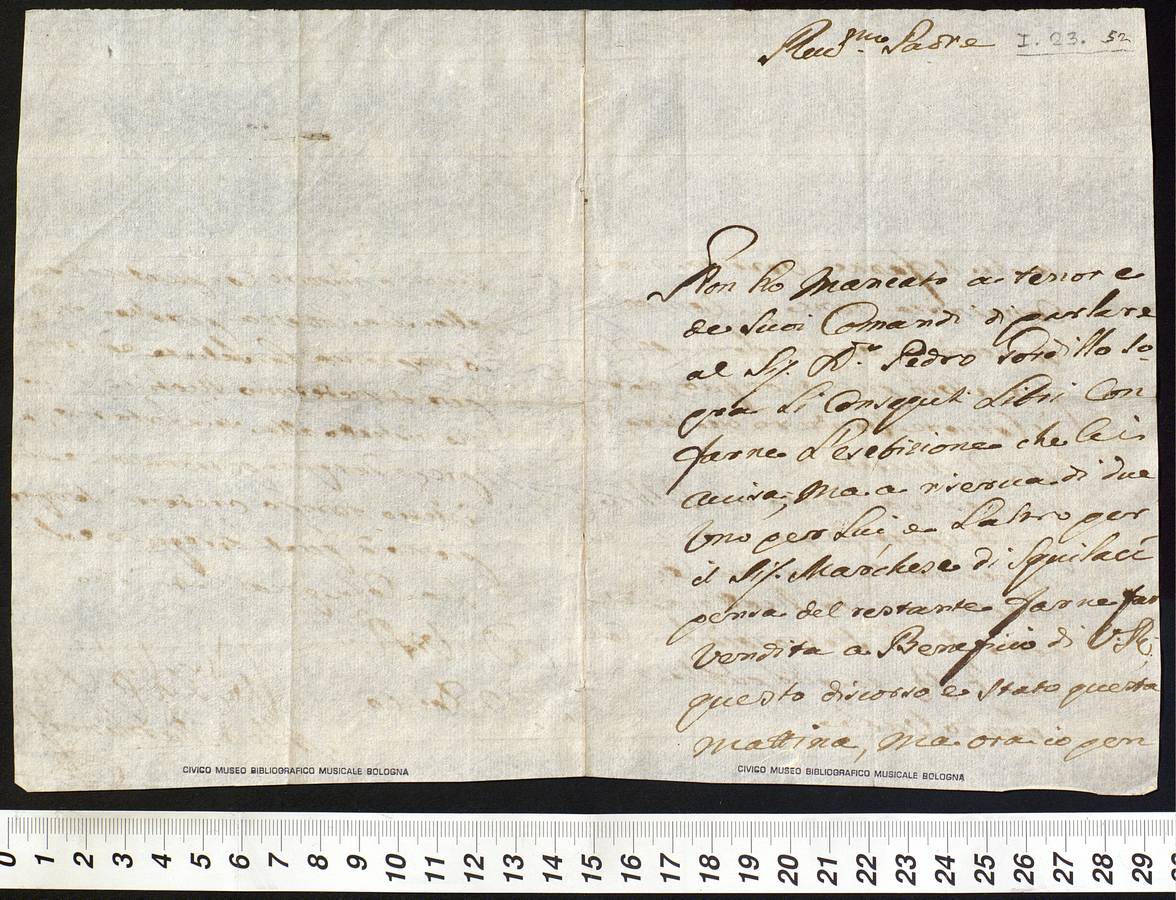 Rev.mo Padre
I. 23. 52
Non ho Mancato a tenore
de Suoi Comandi di parlare
al Sig. D.n Pedro Gordillo so=
pra li Consaputi Libri Con
farne L'esebizione che Lei
avisa, Ma a riserva di due
Uno per Lui e L'altro per
il Sig. Marchese di Squilaci
pensa del restante farne far
Vendita a Beneficio di V. R.
questo discorso e stato questa
Mattina, Ma ora io pen
CIVICO MUSEO BIBLIOGRAFICO MUSICALE BOLOGNA
CIVICO MUSEO BIBLIOGRAFICO MUSICALE BOLOGNA
0 1 2 3 4 5 6 7 8 9 10 11 12 13 14 15 16 17 18 19 20 21 22 23 24 25 26 27 28 29